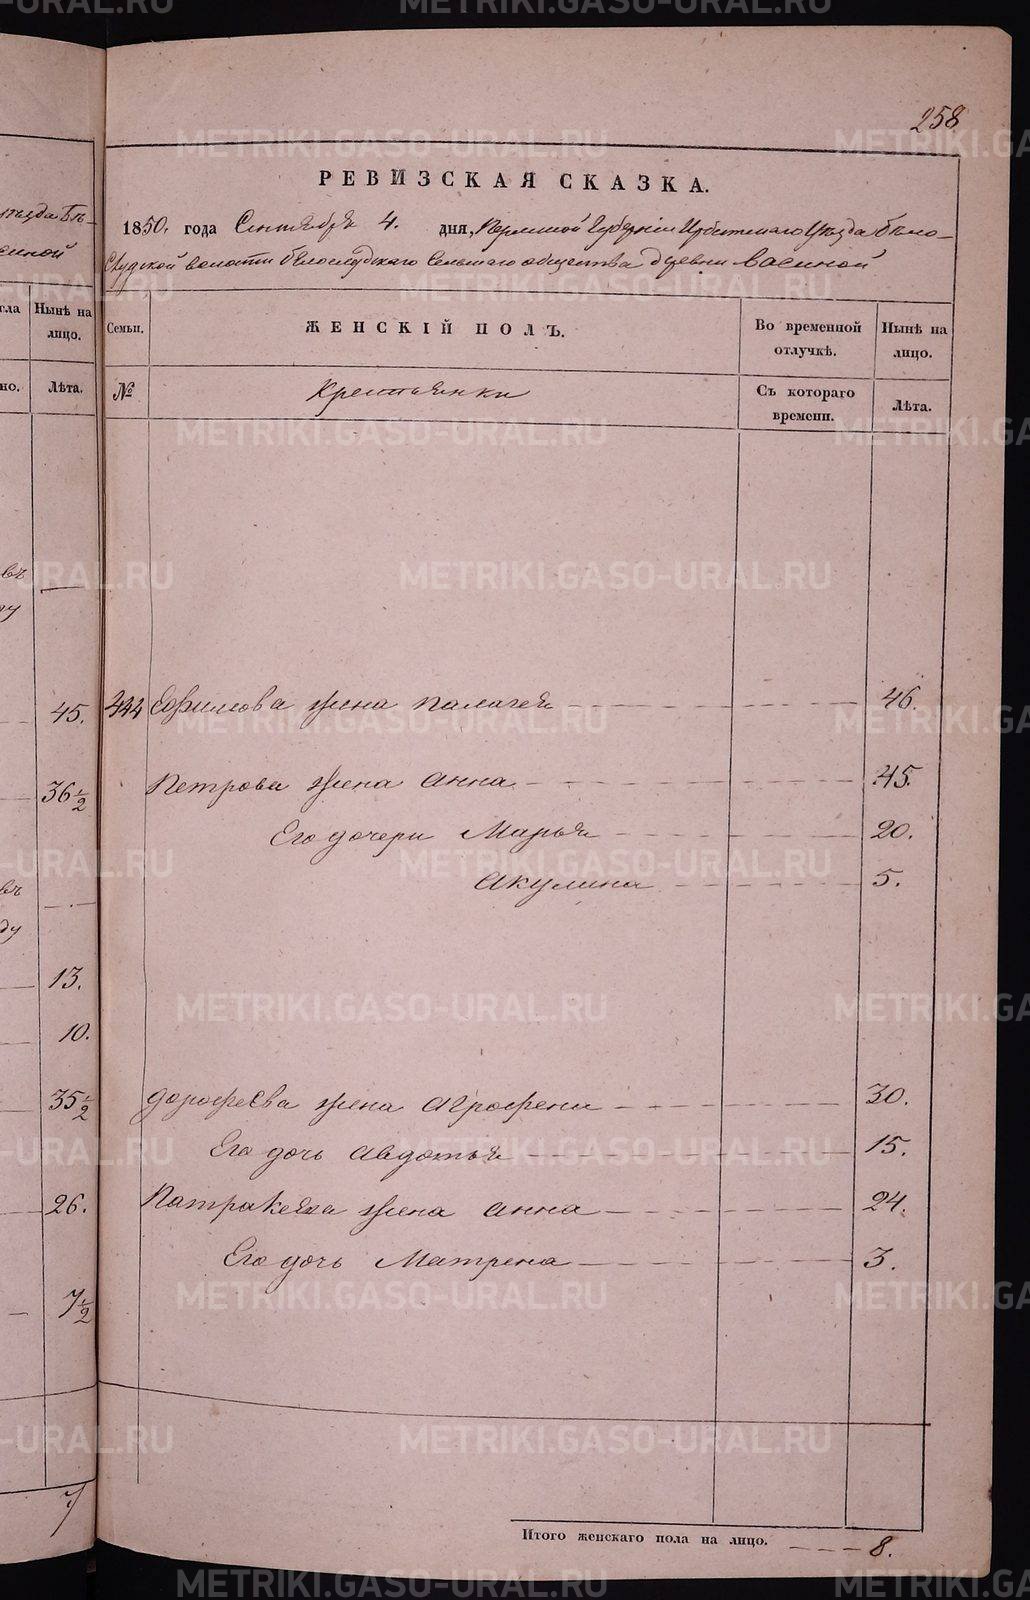 258
РЕВИЗСКАЯ СКАЗКА.
1850. года Сентября 4. дня, Пермской Губерніи Ирбитскаго Уѣзда Бѣло-
слудской волости Бѣлослудскаго Сельскаго общества деревни
Семьи. ЖЕНСКІЙ ПОЛЪ. Во временной отлучкѣ. Нынѣ на лицо.
№ Крестьянки Съ котораго времени. Лѣта.
444 Ефимова жена Палагея 46.
Петрова жена Анна 45.
Его дочери Марья 20.
Акулина 5.
Дорофеева жена Агрофена 30.
Его дочь Авдотья 15.
Патракеева жена Анна 24.
Его дочь Матрена 3.
Итого женскаго пола на лицо. 8.
Нынѣ на лицо.
Лѣта.
45.
36½
13.
10.
35½
26.
7½
METRIKI.GASO-URAL.RU